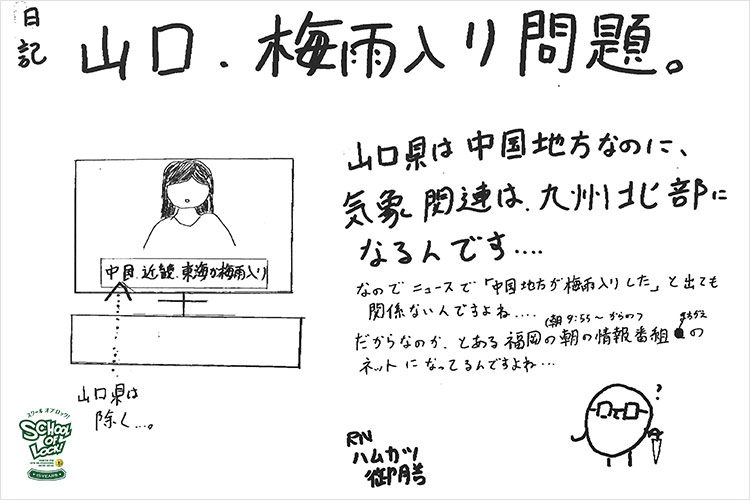 日記
山口、梅雨入り問題。
山口県は中国地方なのに、
気象関連は、九州北部に
なるんです....
なのでニュースで「中国地方が梅雨入りした」と出ても
関係ない人ですよね....
(朝9:55～からの)
まちがえ
だからなのか、とある福岡の朝の情報番組の
ネットになってるんですよね...
中国、近畿、東海が梅雨入り
山口県は
除く...。
?
RN
ハムカツ
御膳
スクール オブ ロック!
SCHOOL
OF
LOCK!